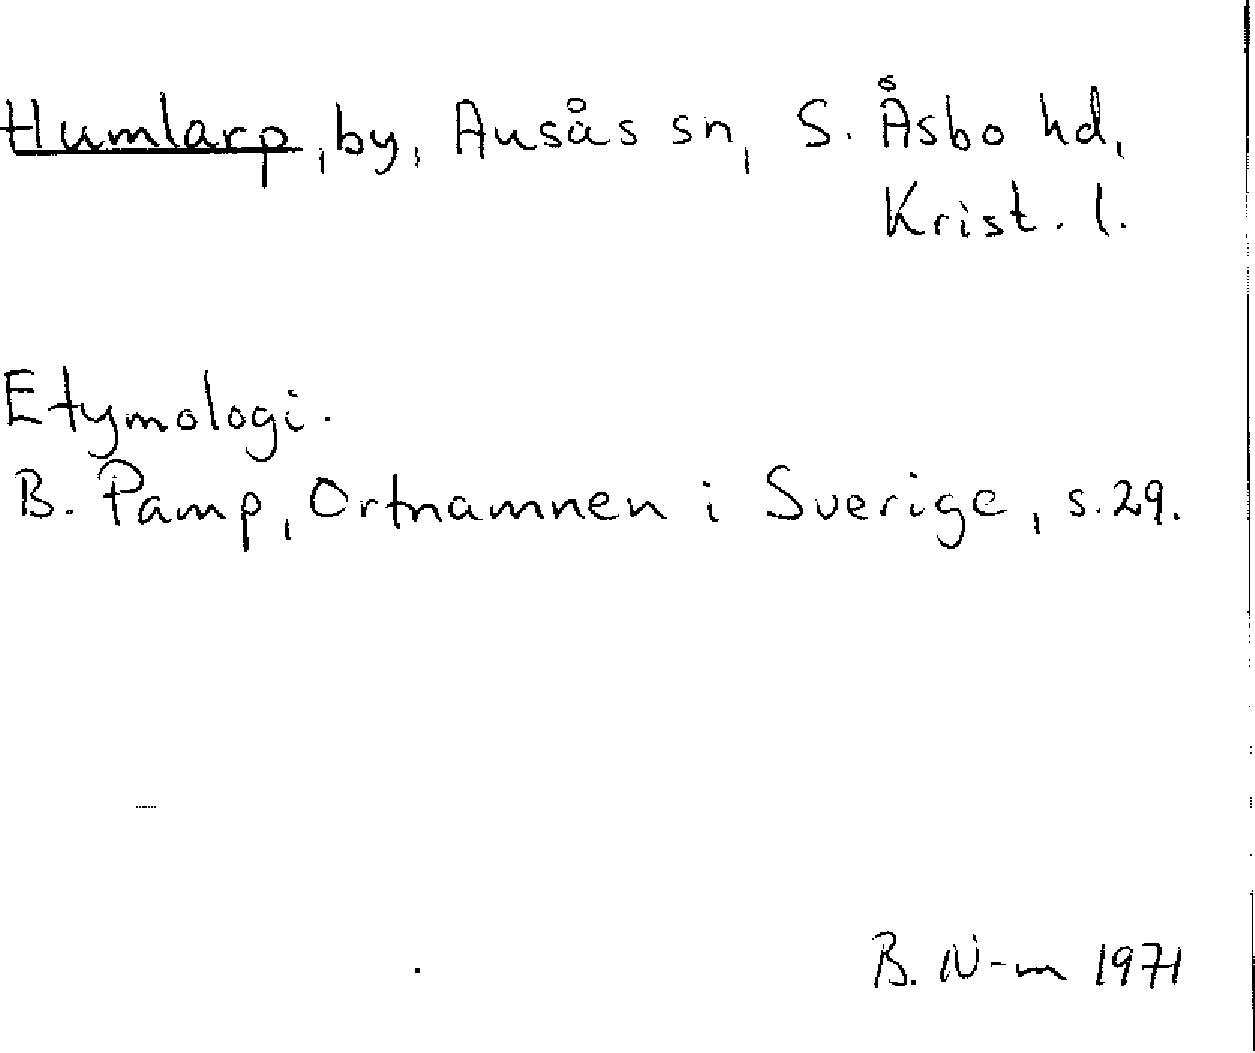 Humlarp, by, Ausås sn, S. Åsbo hd,
Krist. l.
Etymologi.
B. Pamp, Ortnamnen i Sverige, s. 29.
B. N-m 1971